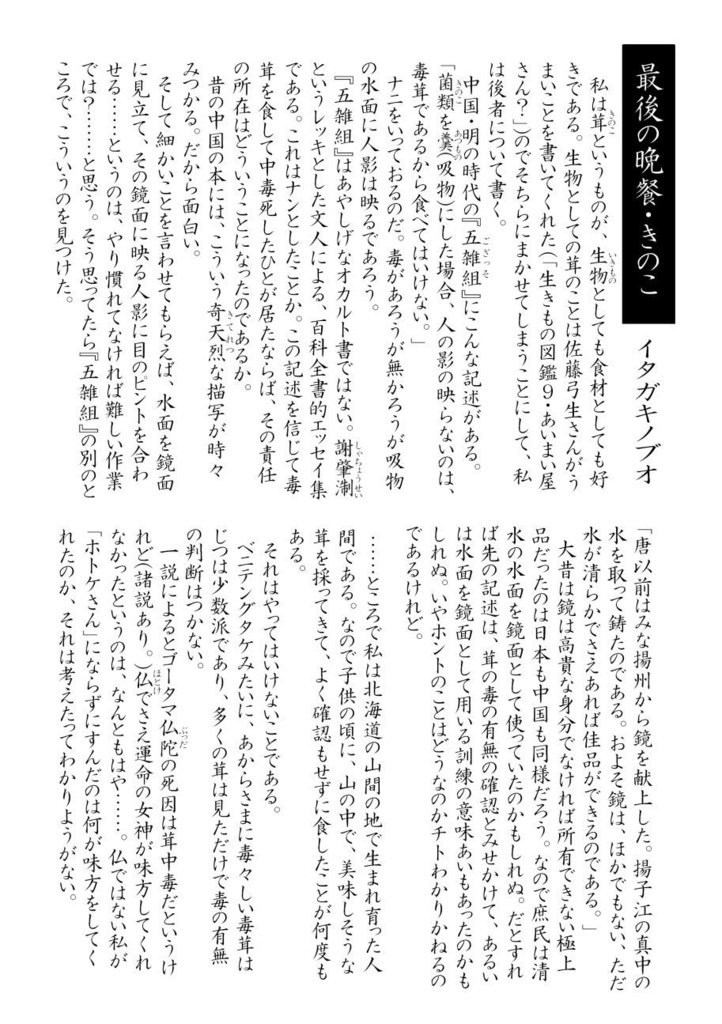 最後の晩餐・きのこ
イタガキノブオ
私は茸というものが、生物としても食材としても好
きである。生物としての茸のことは佐藤弓生さんがう
まいことを書いてくれた(「生きもの図鑑9・あいまい屋
さん?」)のでそちらにまかせてしまうことにして、私
は後者について書く。
中国・明の時代の『五雑組』にこんな記述がある。
「菌類を羹(吸物)にした場合、人の影の映らないのは、
毒茸であるから食べてはいけない。」
ナニをいっておるのだ。毒があろうが無かろうが吸物
の水面に人影は映るであろう。
『五雑組』はあやしげなオカルト書ではない。謝肇淛
というレッキとした文人による、百科全書的エッセイ集
である。これはナンとしたことか。この記述を信じて毒
茸を食して中毒死したひとが居たならば、その責任
の所在はどういうことになったのであるか。
昔の中国の本には、こういう奇天烈な描写が時々
みつかる。だから面白い。
そして細かいことを言わせてもらえば、水面を鏡面
に見立て、その鏡面に映る人影に目のピントを合わ
せる……というのは、やり慣れてなければ難しい作業
では?……と思う。そう思ってたら『五雑組』の別のと
ころで、こういうのを見つけた。
「唐以前はみな揚州から鏡を献上した。揚子江の真中の
水を取って鋳たのである。およそ鏡は、ほかでもない、ただ
水が清らかでさえあれば佳品ができるのである。」
大昔は鏡は高貴な身分でなければ所有できない極上
品だったのは日本も中国も同様だろう。なので庶民は清
水の水面を鏡面として使っていたのかもしれぬ。だとすれ
ば先の記述は、茸の毒の有無の確認とみせかけて、あるい
は水面を鏡面として用いる訓練の意味あいもあったのかも
しれぬ。いやホントのことはどうなのかチトわかりかねるの
であるけれど。
……ところで私は北海道の山間の地で生まれ育った人
間である。なので子供の頃に、山の中で、美味しそうな
茸を採ってきて、よく確認もせずに食したことが何度も
ある。
それはやってはいけないことである。
ベニテングタケみたいに、あからさまに毒々しい毒茸は
じつは少数派であり、多くの茸は見ただけで毒の有無
の判断はつかない。
一説によるとゴータマ仏陀の死因は茸中毒だというけ
れど(諸説あり。)仏でさえ運命の女神が味方してくれ
なかったというのは、なんともはや……。仏ではない私が
「ホトケさん」にならずにすんだのは何が味方をしてく
れたのか、それは考えたってわかりようがない。